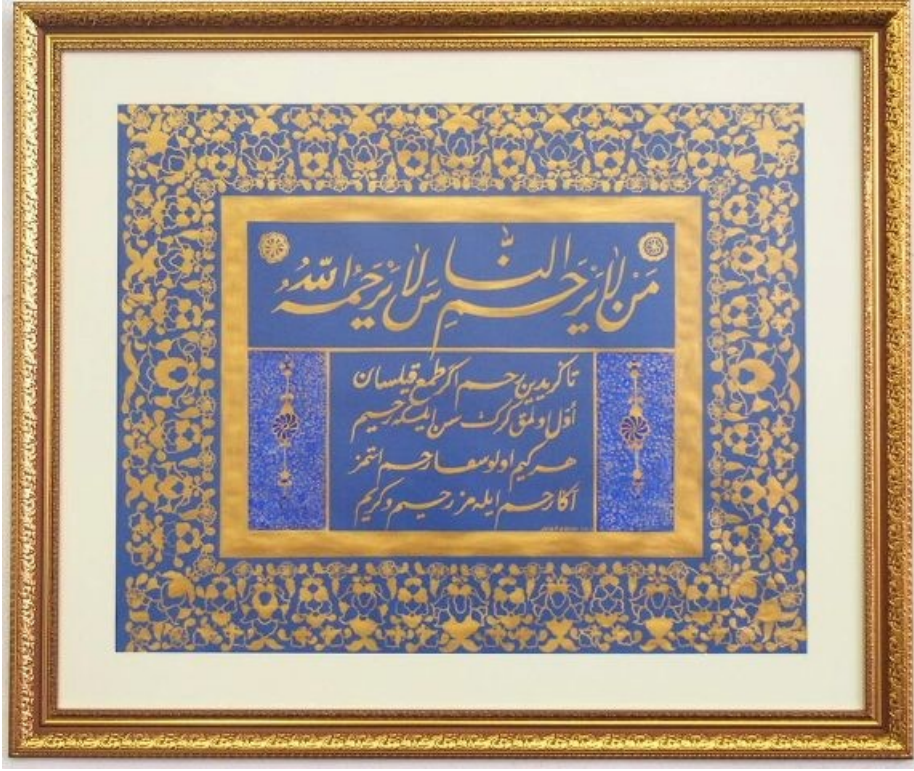 مَنْ لَا يَرْحَمِ النَّاسَ لَا يَرْحَمْهُ اللّٰهُ
تاكريدين رحم اكر طمع قيلسان
اوّل اولمق كرك سن ايلغه رحيم
هر كيم اولوسغا رحم ايتمز
آكا رحم ايله مز رحيم و كريم